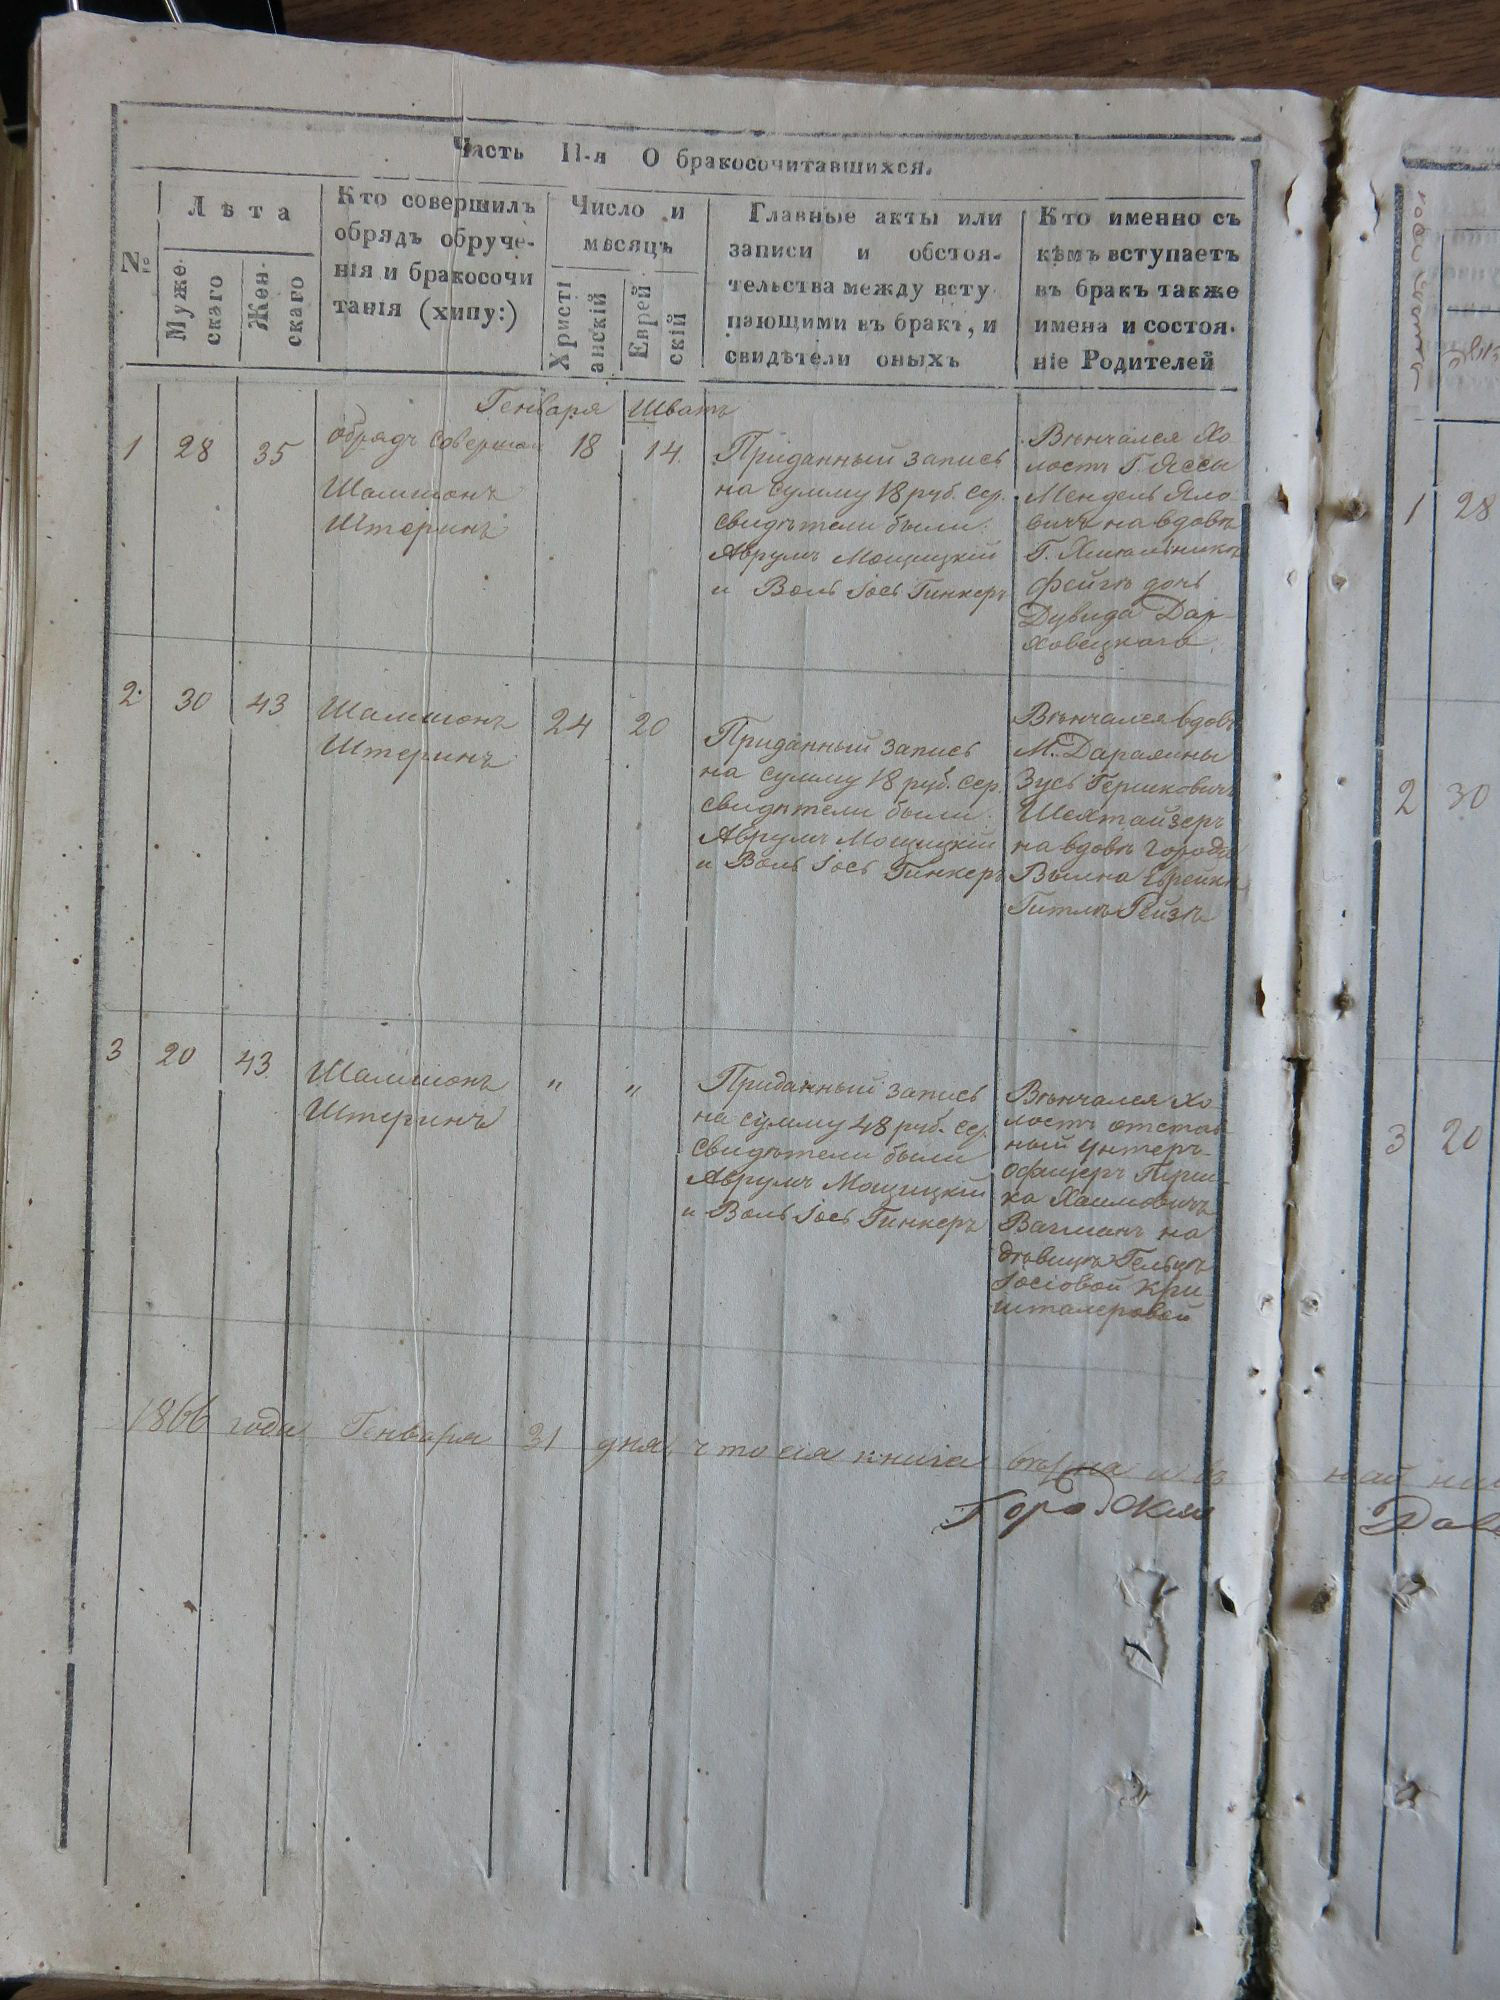 Часть II-я О бракосочитавшихся.
№
Лѣта
Муже-
скаго
Жен-
скаго
Кто совершилъ
обрядъ обруче-
нія и бракосочи
танія (хипу:)
Число и
мѣсяцъ
Христі
анскій
Еврей
скій
Главные акты или
записи и обстоя-
тельства между всту
пающими въ бракъ, и
свидѣтели оныхъ
Кто именно съ
кѣмъ вступаетъ
въ бракъ также
имена и состоя-
ніе Родителей
Генваря Шватъ
1 28 35
обрядъ совершал
Шамшонъ
Штеринъ
18 14
Приданный запись
на сумму 18 руб. сер.
свидѣтели были:
Аврумъ Мощицкій
и Воль Іось Гинкеръ
Вѣнчался хо
лостъ Г. Яссы
Мендель
на вдовѣ
Г. Хмѣльника
Фейгѣ дочь
Дувида Дар-
ховецкаго.
2 30 43
Шамшонъ
Штеринъ
24 20
Приданный запись
на сумму 18 руб. сер.
свидѣтели были
Аврумъ Мощицкій
и Воль Іось Гинкеръ
Вѣнчался вдовъ
М.
Зусь Гершковичъ
Шехтайзеръ
на вдовѣ города
Еврейкѣ
Гитлѣ Рейзѣ
3 20 43
Шамшонъ
Штеринъ
" "
Приданный запись
на сумму 48 руб. сер.
свидѣтели были
Аврумъ Мощицкій
и Воль Іось Гинкеръ
Вѣнчался хо-
лостъ отстав
ный унтеръ-
офицеръ Герш-
ка Хаимовичъ
Вагманъ на
дѣвицѣ Гельцѣ
Іосіовой Кри
шталеровой
1866 года Генваря 31 дня, что сія книга вѣрна и въ
1 28
2 30
3 20